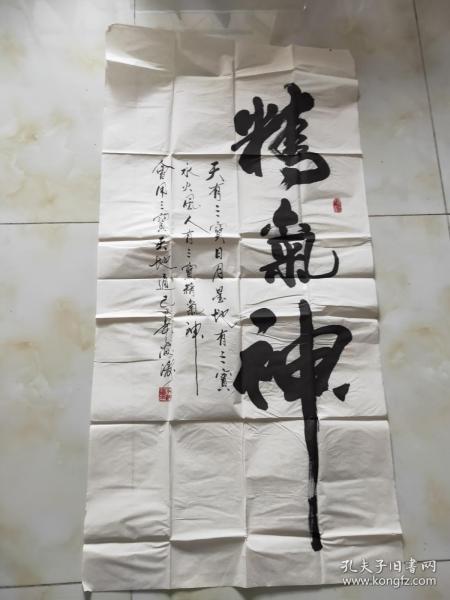 精氣神
天有三寳日月星地有三寳
水火風人有三寳精氣神
會用三寳天地通
孔夫子旧书网
www.kongfz.com